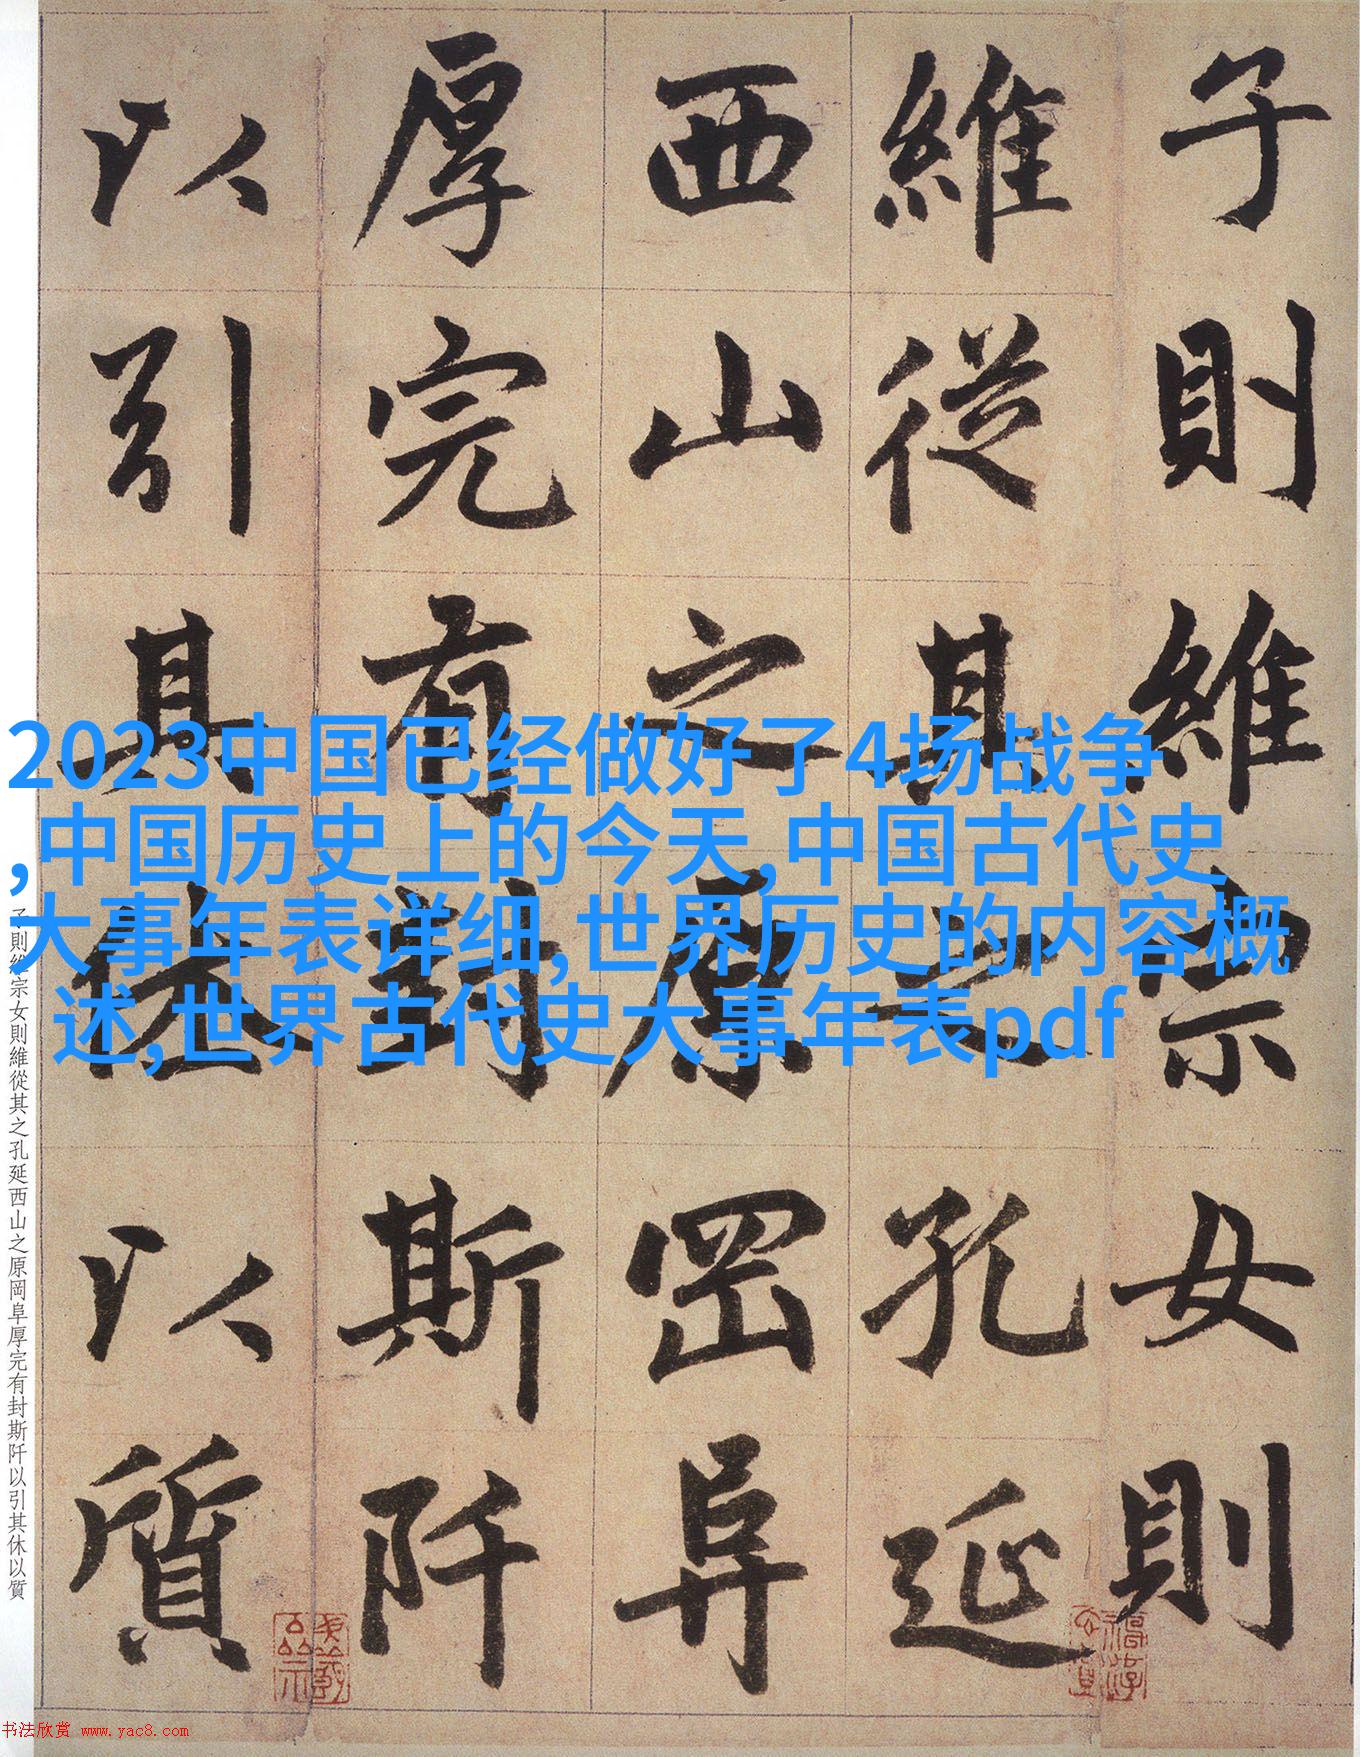 子則維宗女則
維從其之孔延
西山之原罡阜
厚完有封斯阡
以引其休以質
2023中国已经做好了4场战争
,中国历史上的今天,中国古代史
大事年表详细,世界历史的内容概
述,世界古代史大事年表pdf
子則維宗女則維從其之孔延西山之原岡阜厚完有封斯阡以引其休以質
书法欣赏 www.yac8.com